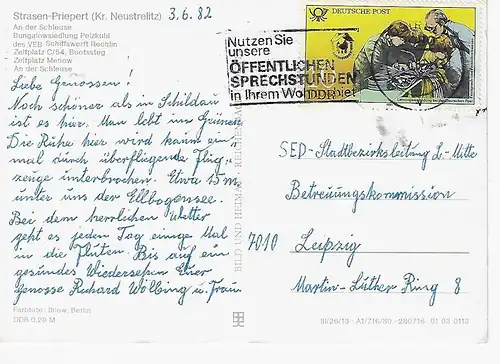 Strasen-Priepert (Kr. Neustrelitz)
3.6.82
An der Schleuse
Bungalowsiedlung Pelzkuhl
des VEB Schiffswerft Rechlin
Zeltplatz C/54, Bootssteg
Zeltplatz Menow
An der Schleuse
Liebe Genossen!
Noch schöner als in Schildau
ist es hier. Man lebt im Grünen.
Die Ruhe hier wird kaum ein-
mal durch überfliegende Flug-
zeuge unterbrochen. Etwa 15m
unter uns der Ellbogensee.
Bei dem herrlichen Wetter
geht es jeden Tag einige Mal
in die Fluten. Bis auf ein
gesundes Wiedersehen Euer
Genosse Richard Wölbing u. Frau
Farbfoto: Bilow, Berlin
DDR 0,20 M
BILD UND HEIMAT REICHENBACH
Nutzen Sie
unsere
ÖFFENTLICHEN
SPRECHSTUNDEN
in Ihrem Wo
DEUTSCHE POST
DDR
SED-Stadtbezirksleitung L.-Mitte
Betreuungskommission
7010 Leipzig
Martin-Luther Ring 8
III/26/13 A1/716/80 280716 01 03 0113